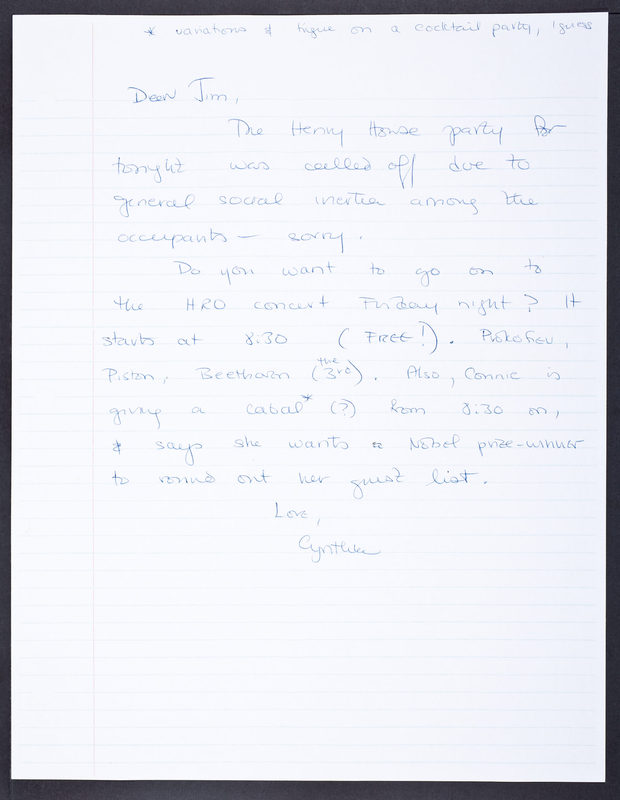 * variations & fugue on a cocktail party, I guess
Dear Jim,
The Henry House party for
tonight was called off due to
general social inertia among the
occupants — sorry.
Do you want to go on to
the HRO concert Friday night? It
starts at 8:30 (FREE!). Prokofiev,
Piston, Beethoven (the 3rd). Also, Connie is
giving a cabal* (?) from 8:30 on,
& says she wants a Nobel prize-winner
to round out her guest list.
Love,
Cynthia